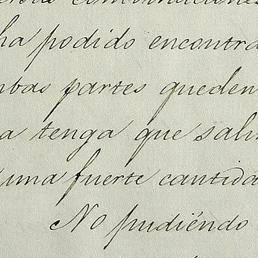 combinaciones
ha podido encontra
mbas partes queden
a tenga que sali
una fuerte cantida
No pudiéndo